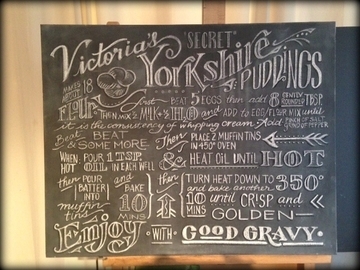 Victoria's "SECRET"
Yorkshire PUDDINGS
MAKES ABOUT 18
First BEAT 5 EGGS then add 8 EVENLY ROUNDED TBSP.
FLOUR THEN MIX ½ MILK & ½ H2O and ADD TO EGG/FLOUR MIX until
it is the consistency of whipping cream. Add PINCH OF SALT GRIND OF PEPPER
BEAT & SOME MORE
then PLACE 2 MUFFIN TINS IN 450° OVEN
& HEAT OIL UNTIL HOT
WHEN HOT POUR 1 TSP. OIL IN EACH WELL
then POUR BATTER INTO muffin tins
and BAKE 10 MINS
then TURN HEAT DOWN TO 350°
and bake another 10 MINS until CRISP and GOLDEN
Enjoy WITH GOOD GRAVY